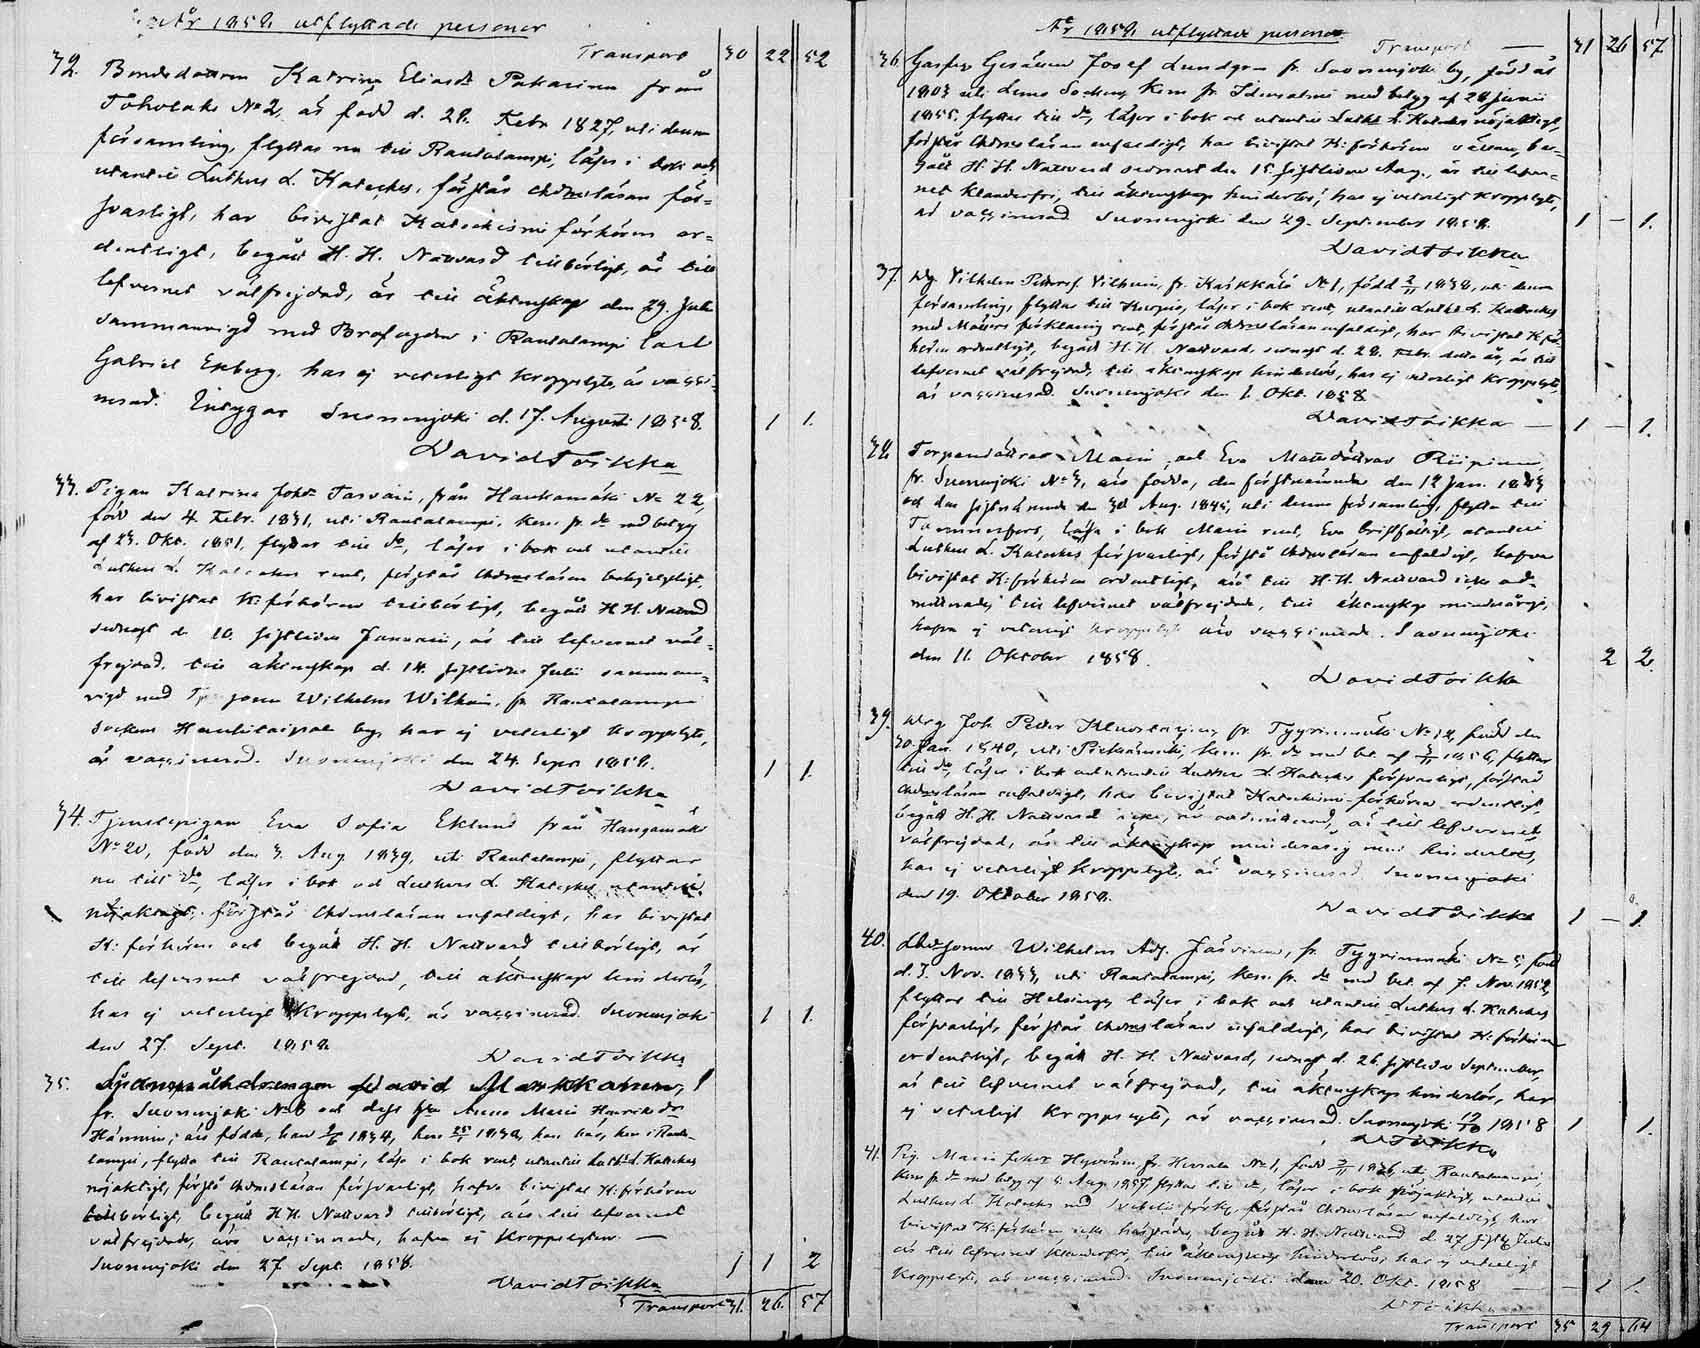 År 1858 utflyttade personer
Transport 30 22 52
32. Bondedottren Katrina Eliasdr Pakarinen från
Toholaks No 2, är född d. 28. Febr 1827, uti denna
församling, flyttar nu till Rautalampi, läser i bok och
utantill Luthers L. Kateches, förstår Chdmsläran för-
svarligt, har bivistat Katechismi förhören or-
dentligt, begått H. H. Nattvard tillbörligt, är till
lefvernet välfrejdad, är till äktenskap den 29. Juli
sammanvigd med Brofogden i Rautalampi Carl
Gabriel Enberg, har ej veterligt kroppslyte, är vacci-
nerad. Intygar Suonenjoki d. 17. Augusti 1858. 1 1.
David Toikka
33. Pigan Katrina Johdr Tarvain, från Haukamäki No 22,
född den 4. Febr. 1831, uti Rautalampi, kom fr. do med betyg
af 23. Okt. 1851, flyttar till do, läser i bok och utantill
Luthers L. Kateches rent, förstår Chdmsläran behjelpligt,
har bivistat K: förhören tillbörligt, begått H H. Nattvard
sednast d. 10. sistlidne Januarii, är till lefvernet väl-
frejdad, till äktenskap d. 14. sistlidne Julii samman-
vigd med Wilhelm Wilhain, fr. Rautalampi
Sockens Hankitaipale by, har ej veterligt kroppslyte,
är vaccinerad. Suonenjoki den 24. Sept 1858. 1 1.
David Toikka
34. Tjenstepigan Eva Sofia Eklund från Hangamäki
No 20, född den 3. Aug 1839, uti Rautalampi, flyttar
nu till do, läser i bok och Luthers L. Kateches utantill
nöjaktigt, förstår Chdmsläran enfaldigt, har bivistat
K: förhören och begått H. H. Nattvard tillbörligt, är
till lefvernet välfrejdad, till äktenskap hinderlös,
har ej veterligt kroppslyte, är vaccinerad. Suonenjoki 1 1.
den 27. Sept. 1858
David Toikka
35. David Markkanen,
fr. Suonenjoki No 8 och dess Anna Maria Henriksdr
Hänninen, äro födde, han 1834, hon 1838, han här, hon i Rauta-
lampi, flytta till Rautalampi, läsa i bok rent, utantill Luth: L. Kateches
nöjaktigt, förstå Chdmsläran försvarligt, hafva bivistat K: förhören
tillbörligt, begått H H. Nattvard tillbörligt, äro till lefvernet
välfrejdade, äro vaccinerade, hafva ej kroppslyten. —
Suonenjoki den 27 Sept. 1858. 1 1 2
David Toikka
Transport 31. 26. 57
År 1858 utflyttade personer
Transport — 31 26 57
36. Gesällen Josef Lundgren fr. Suonenjoki by, född år
1803 uti Lemo Socken, kom fr. Idensalmi med betyg af 28 Junii
1855, flyttar till do, läser i bok och utantill Luthers L. Kateches nöjaktigt,
förstår Chdmsläran enfaldigt, har bivistat K: förhören sällan, be-
gått H. H. Nattvard sednast den 15. sistlidne Aug., är till lefver-
net klanderfri, till äktenskap hinderlös, har ej veterligt kroppslyte,
är vaccinerad. Suonenjoki den 29. September 1858. 1 — 1.
David Toikka
37. Vilhelm Pettersf Vilhuin, fr. Kärkkälä No 1, född 1838, uti denna
församling, flyttar till Kuopio, läser i bok rent, utantill Luthrs L. Kateches
med Möllers förklaring rent, förstår Chdmsläran enfaldigt, har bivistat K: för-
hören ordentligt, begått H. H. Nattvard, senast d. 28. Febr. detta år, är till
lefvernet välfrejdad, till äktenskap hinderlös, har ej veterligt kroppslyte,
är vaccinerad. Suonenjoki den 1. Okt. 1858
David Toikka — 1 — 1.
38. Torpardöttrar Maria, och Eva Matsdöttrar Riipinen
fr. Suonenjoki No 3, äro födda, den förstnämnda den 12 Jan. 1843
och den sistnämnda den 30 Aug. 1845, uti denna församling, flytta till
Tammerfors, läsa i bok Maria rent, Eva bristfälligt, utantill
Luthers L. Kateches försvarligt, förstå Chdmsläran enfaldigt, hafva
bivistat K: förhören ordentligt, äro till H. H. Nattvard icke ad-
mitterade, till lefvernet välfrejdade, till äktenskap minderåriga,
hafva ej veterligt kroppslyte äro vaccinerade. Suonenjoki
den 11. Oktober 1858. 2 2.
David Toikka
39. Joh Petter fr. Tyyrinmäki No 12, född den
30. Jan. 1840, uti Pieksämäki, kom fr. do med bet. af 1856, flyttar
till do, läser i bok och utantill Luthers L. Kateches försvarligt, förstår
Chdmsläran enfaldigt, har bivistat Katechismi-förhören ordentligt,
begått H. H. Nattvard icke, är admitterad, är till lefvernet
välfrejdad, är till äktenskap minderårig men hinderlös,
har ej veterligt kroppslyte, är vaccinerad. Suonenjoki
den 19. Oktober 1858.
David Toikka 1 — 1.
40. Wilhelm Adf. Järvinen, fr. Tyyrinmäki No 5, född
d. 3. Nov. 1833, uti Rautalampi, kom fr. do med bet. af 7. Nov. 1852,
flyttar till Helsinge, läser i bok och utantill Luthers L. Kateches
försvarligt, förstår Chdmsläran enfaldigt, har bivistat K: förhören
ordentligt, begått H. H. Nattvard, senast d. 26 sistlidne September,
är till lefvernet välfrejdad, till äktenskap hinderlös, har
ej veterligt kroppslyte, är vaccinerad. Suonenjoki 19/10 1858 1 1.
D Toikka
41. Pig. Maria Johdr Hyvönen, fr. Herrala No 1, född 1836, uti Rautalampi,
kom fr. do med betyg af 5 Aug 1857, flyttar till do, läser i bok nöjaktigt, utantill
Luthers L. Kateches med förkl, förstår Chdmsläran enfaldigt, har
bivistat K: förhören icke härstädes, begått H. H. Nattvard d. 27 sistl. Juli
är till lefvernet klanderfri, till äktenskap hinderlös, har ej veterligt
kroppslyte, är vaccinerad. Suonenjoki den 20. Okt. 1858 — — 1 1.
D Toikka
Transport 35 29 64